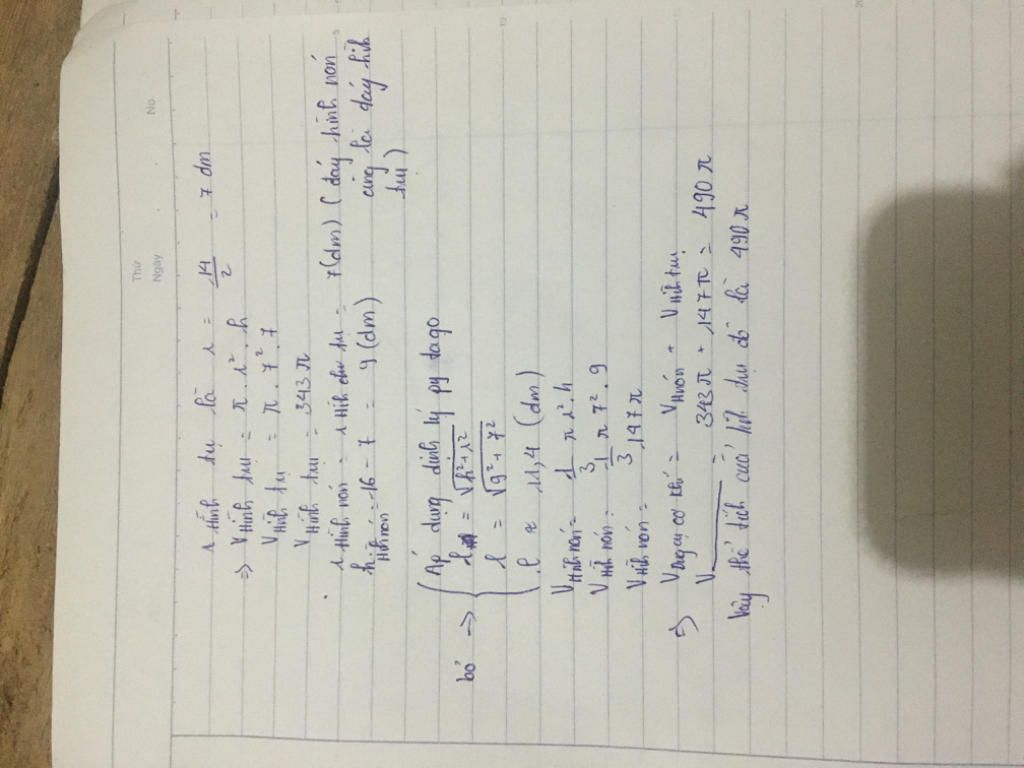 Thứ
Ngày
No.
r hình trụ là r = 14/2 = 7 dm
=> V Hình trụ = π . r² . h
V Hình trụ = π . 7² . 7
V Hình trụ = 343 π
r Hình nón = r Hình trụ = 7 (dm) (đáy hình nón
cũng là đáy hìh
trụ)
h Hìh nón = 16 - 7 = 9 (dm)
bỏ -> Áp dụng định lý py tago
l = √h² + r²
l = √9² + 7²
l ≈ 11,4 (dm)
V Hình nón = 1/3 π r² . h
V Hìh nón = 1/3 π 7² . 9
V Hìh nón = 147 π
=> V Dụng cụ cơ khí = V Hnón + V Hìh trụ
V = 343 π + 147 π = 490 π
Vậy thể tích của hìh đó là 490 π